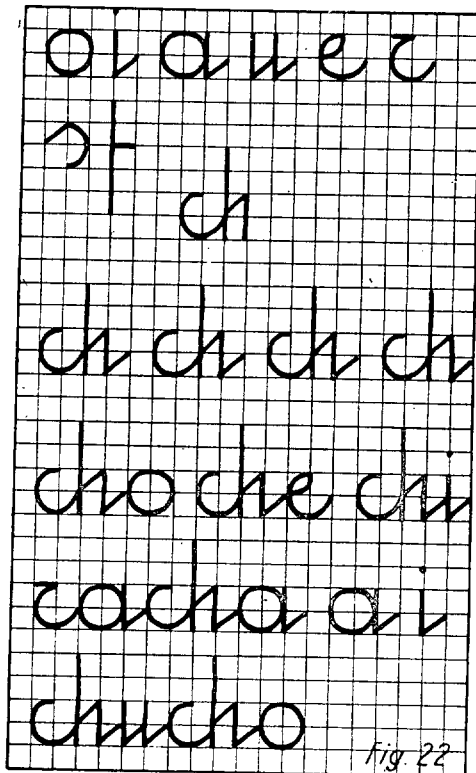 o i a u e r
ch
ch ch ch ch
cho che chi
racha a i
chucho
Fig. 22